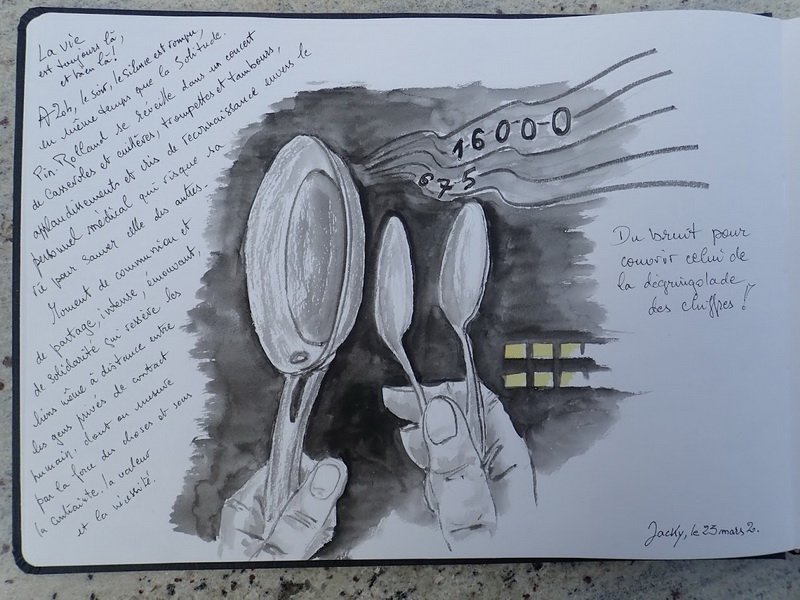 La vie
est toujours là,
et bien là !
A 20h, le soir, le silence est rompu,
en même temps que la solitude.
Pin-Rolland se réveille dans un concert
de casseroles et cuillères, trompettes et tambours,
applaudissements et cris de reconnaissance envers le
personnel médical qui risque sa
vie pour sauver celle des autres.
Moment de communion et
de partage, intense, émouvant,
de solidarité qui resserre les
liens même à distance entre
les gens privés de contact
humain, dont on mesure
par la force des choses et sous
la contrainte, la valeur
et la nécessité.
16000
675
Du bruit pour
couvrir celui de
la dégringolade
des chiffres !
Jacky, le 23 mars 2.